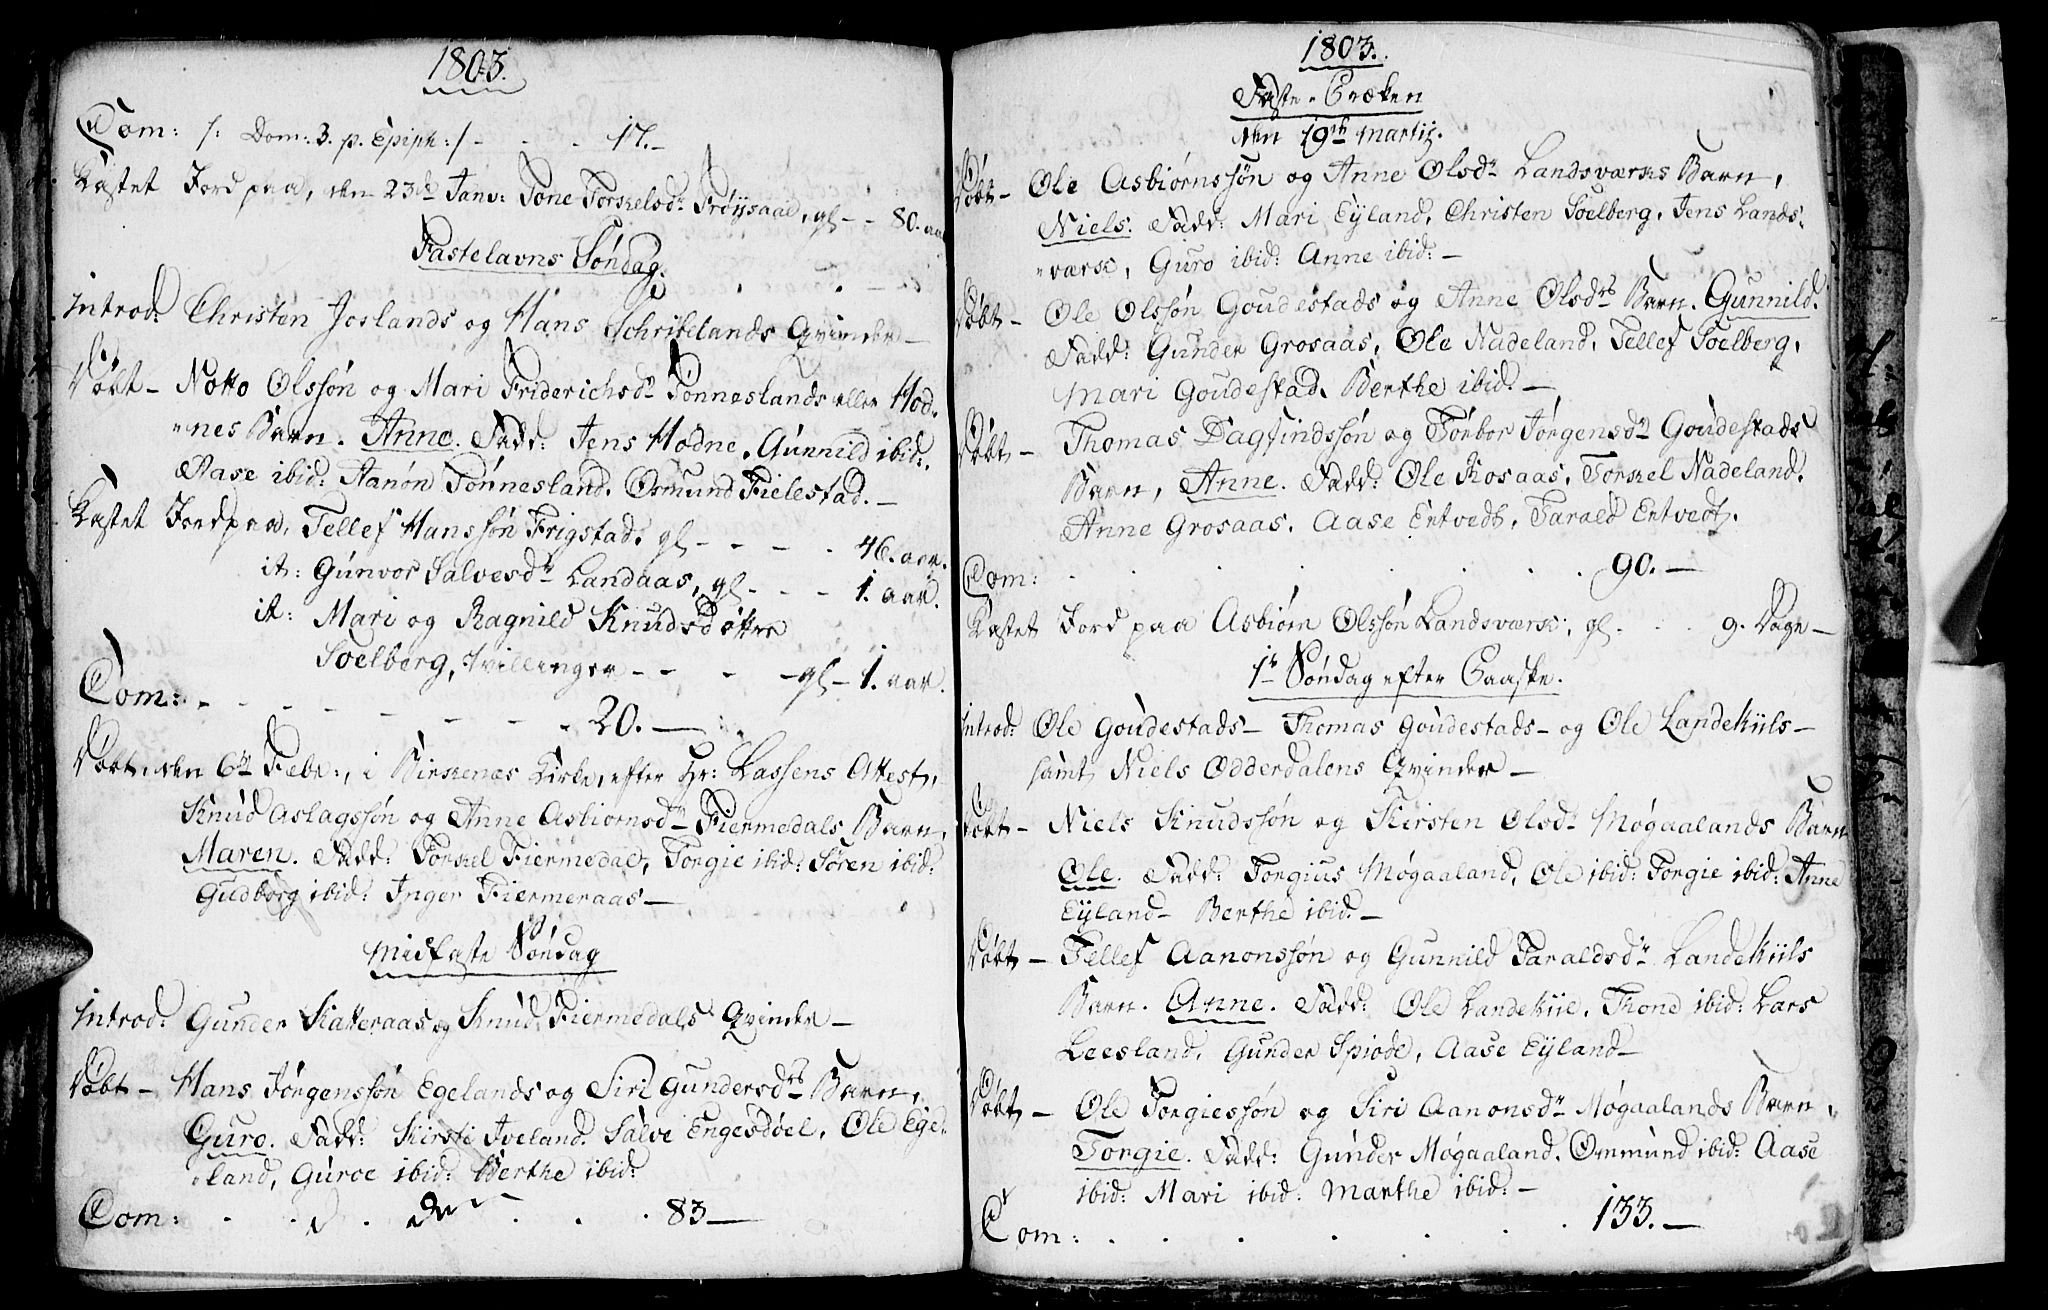 1803.
Com: /: Dom: 3. p. Epiph: / - - - 17. -
Kastet Jord paa, den 23de Janv: Tone Torkelsdr Frøysaae, gl - - 80. aar
Fastelavns Søndag.
Introd: Christen Joslands og Hans Schribelands Qvinder -
Døbt - Notto Olssøn og Mari Friderichsdr Tønneslands eller Hod,
"nes Barn. Anne. Fadd: Jens Hodne, Gunnild ibid:,
Aase ibid: Aanøn Tønnesland. Osmund Fielestad. -
Kastet Jord paa, Tellef Hanssøn Frigstad. gl - - - - 46. aar.
it: Gunvor Salvesdr Landaas, gl - - - 1. aar.
it: Mari og Ragnild Knudsdøttre
Soelberg, tvillinger - - - - gl - 1. aar.
Com: - - - - - - - - 20. -
Døbt, den 6te Febr:, i Birkenæs Kirke, efter Hr: Lassens Attest,
Knud Aslagssøn og Anne Asbiørnsdr Fiermedals Barn,
Maren. Fadd: Torkel Fiermedal, Torgie ibid: Søren ibid:
Gudborg ibid: Inger Fiermeraas -
Midfaste Søndag
Introd: Gunder Katteraas og Knud Fiermedals Qvinder -
Døbt - Hans Jørgenssøn Egelands og Siri Gundersdrs Barn,
Guro. Fadd: Kirsti Iveland. Salve Engesdøel, Ole Ege,
"land, Guroe ibid: Berthe ibid:
Com: . . . . . . 83 -
1803.
Faste-Præken
den 19de Martij.
Døbt - Ole Asbiørnssøn og Anne Olsdr Landsværks Barn,
Niels. Fadd: Mari Eyland, Christen Soelberg, Jens Lands,
"værk, Guro ibid: Anne ibid: -
Døbt - Ole Olssøn Goudestads og Anne Olsdrs Barn. Gunnild.
Fadd: Gunder Grosaas, Ole Nadeland, Tellef Soelberg,
Mari Goudestad. Berthe ibid. -
Døbt - Thomas Dagfindssøn og Torbor Jørgensdr Goudestads
Barn, Anne. Fadd: Ole Kosaas, Torkel Nadeland.
Anne Grosaas. Aase Entvedt, Tarald Entvedt.
Com: . . . . . . . 90. -
Kastet Jord paa Asbiørn Olssøn Landsværk, gl . . . 9. Dage -
1te Søndag efter Paaske.
Introd: Ole Goudestads - Thomas Goudestads - og Ole Landekiils -
samt Niels Odderdalens Qvinder -
Døbt - Niels Knudssøn og Kirsten Olsdr Møgaalands Barn
Ole. Fadd: Torgius Møgaaland, Ole ibid: Torgie ibid: Anne
Eyland - Berthe ibid. -
Døbt - Tellef Aanonssøn og Gunnild Taraldsdr Landekiils
Barn. Anne. Fadd: Ole Landekiil, Thone ibid: Lars
Leesland, Gunder Spiode, Aase Eyland -
Døbt - Ole Torgiessøn og Siri Aanonsdr Møgaalands Barn,
Torgie. Fadd: Gunder Møgaaland. Ommund ibid: Aase
ibid: Mari ibid: Marthe ibid: -
Com: . . . . . . 133. -